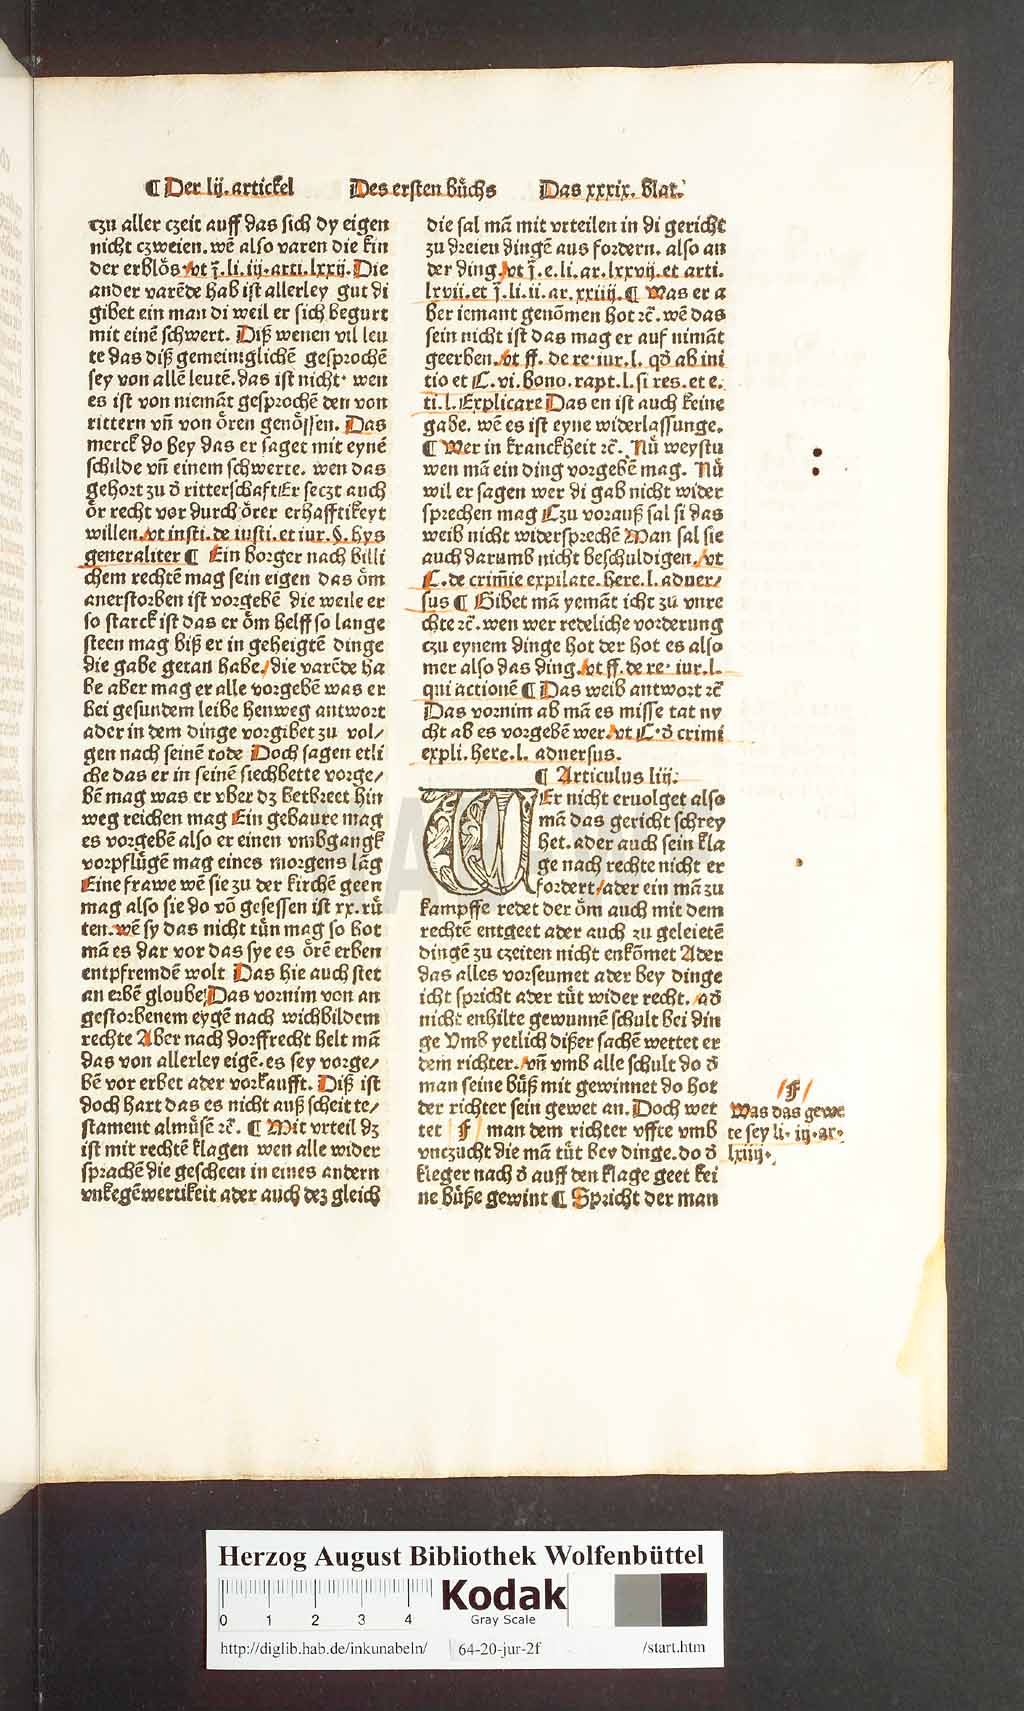 ¶ Der lij. artickel Des ersten bůchs Das xxxix. blat.
tzu aller czeit auff das sich dy eigen
nicht czweien. wē also varen die kin
der erblős vt j̄. li. iij. arti. lxxij. Die
ander varēde hab ist allerley gut di
gibet ein man di weil er sich begurt
mit einē schwert. Diß wenen vil leu
te das diß gemeiniglichē gesprochē
sey von allē leutē. das ist nicht. wen
es ist von niemāt gesprochē den von
rittern vn̄ von őren genőssen. Das
merck do bey das er saget mit eynē
schilde vn̄ einem schwerte. wen das
gehort zu d̄ ritterschaft Er seczt auch
őr recht vor durch őrer erhafftikeyt
willen. vt insti. de iusti. et iur. §. hys
generaliter ¶ Ein borger nach billi
chem rechtē mag sein eigen das őm
anerstorben ist vorgebē die weile er
so starck ist das er őm helff so lange
steen mag biß er in geheigtē dinge
die gabe getan habe / die varēde ha
be aber mag er alle vorgebē was er
bei gesundem leibe henweg antwort
ader in dem dinge vorgibet zu vol/
gen nach seinē tode Doch sagen etli
che das er in seinē siechbette vorge/
bē mag was er vber dz betbreet hin
weg reichen mag Ein gebaure mag
es vorgebē also er einen vmbgangk
vorpflůgēn mag eines morgens lāg
Eine frawe wē sie zu der kirchē geen
mag also sie do vō gesessen ist xx. růt
ten. wē sy das nicht tůn mag so hot
mā es dar vor das sye es őrē erben
entpfremdē wolt Das hie auch stet
an erbē gloube Das vornim von an
gestorbenem eygē nach wichbildem
rechte Aber nach dorffrecht helt mā
das von allerley eigē. es sey vorge/
bē vor erbet ader vorkaufft. Diß ist
doch hart das es nicht auß scheit te/
stament almůsē rc̄. ¶ Mit vrteil dz
ist mit rechtē klagen wen alle wider
sprachē die gescheen in eines andern
vnkegēwertikeit ader auch dez gleich
die sal mā mit vrteilen in di gericht
zu dreien dingē aus fordern. also an
der ding. vt j̄. e. li. ar. lxxvij. et arti.
lxvii. et j̄. li. ii. ar. xxiiij. ¶ Was er a
ber iemant genōmen hot rc̄. wē das
sein nicht ist das mag er auf nimāt
geerben. vt ff. de re. iur. l. qd̄ ab ini
tio et C. vi. bono. rapt. l. si res. et e.
ti. l. Explicare Das en ist auch keine
gabe. wē es ist eyne widerlassunge.
¶ Wer in kranckheit rc̄. Nů weystu
wen mā ein ding vorgebē mag. Nů
wil er sagen wer di gab nicht wider
sprechen mag Czu vorauß sal si das
weib nicht widersprechē Man sal sie
auch darumb nicht beschuldigen. vt
C. de crimīe expilate. here. l. aduer/
sus ¶ Gibet mā yemāt icht zu vnre
chte rc̄. wen wer redeliche vorderung
czu eynem dinge hot der hot es also
mer also das ding. vt ff. de re. iur. l.
qui actionē ¶ Das weib antwort rc̄
Das vornim ab mā es misse tat ny
cht ab es vorgebēn wer. vt C. d̄ crimi
expli. here. l. aduersus.
¶ Articulus liij.
WEr nicht eruolget also
mā das gericht schrey
het. ader auch sein kla
ge nach rechte nicht er
fordert / ader ein mā zu
kampffe redet der őm auch mit dem
rechtē entgeet ader auch zu geleietē
dingē zu czeiten nicht enkōmet Ader
das alles vorseumet ader bey dinge
icht spricht ader tůt wider recht. ad̄
nicht enhilte gewunnē schult bei din
ge Vmb yetlich dißer sachē wettet er
dem richter. vn̄ vmb alle schult do d̄
man seine bůß mit gewinnet do hot
der richter sein gewet an. Doch wet
tet F man dem richter vffte vmb
vnczucht die mā tůt bey dinge. do d̄
kleger nach d̄ auff den klage geet kei
ne bůße gewint ¶ Spricht der man
F
Was das gewe
te sey li. iij. ar.
lxiiij.
Herzog August Bibliothek Wolfenbüttel
0 1 2 3 4
Kodak
Gray Scale
http://diglib.hab.de/inkunabeln/ 64-20-jur-2f /start.htm